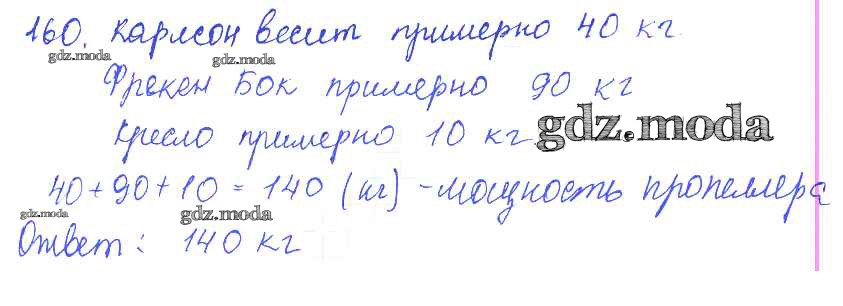 160. Карлсон весит примерно 40 кг.
gdz.moda gdz.moda
Фрекен Бок примерно 90 кг
Кресло примерно 10 кг. gdz.moda
40+90+10=140 (кг) -мощность пропеллера
gdz.moda gdz.moda
Ответ: 140 кг